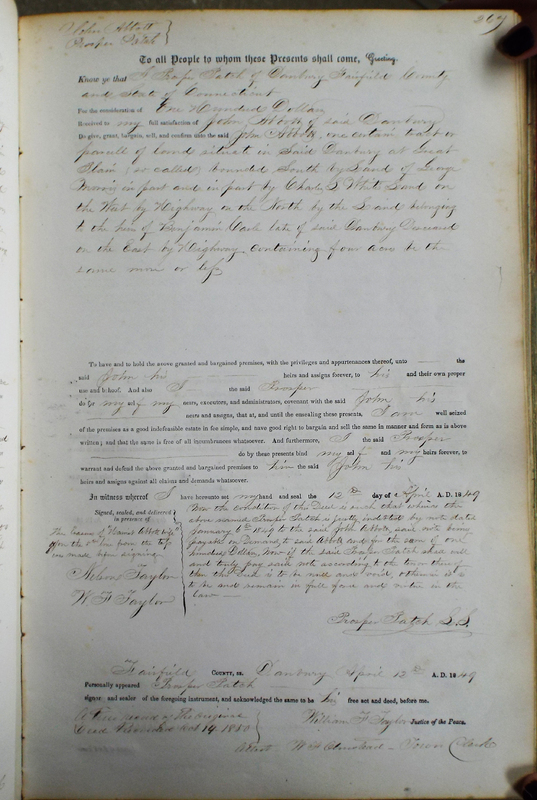 267
John Abbott
Prosper Patch
To all People to whom these Presents shall come, Greeting.
Know ye that I Prosper Patch of Danbury Fairfield County
and State of Connecticut
For the consideration of One Hundred Dollars
Received to my full satisfaction of John Abbott of said Danbury
Do give, grant, bargain, sell, and confirm unto the said John Abbott, one certain tract or
parcell of land situate in Said Danbury at Great
Plain (so called) bounded South by Land of George
Morris in part and in part by Charles White Land on
the West by Highway on the North by the Land belonging
to the heirs of Benjamin late of said Danbury Deceased
on the East by Highway Containing four acres be the
same more or less
To have and to hold the above granted and bargained premises, with the privileges and appurtenances thereof, unto the
said John his heirs and assigns forever, to his and their own proper
use and behoof. And also I the said Prosper
do for my self my heirs, executors, and administrators, covenant with the said John his
heirs and assigns, that at, and until the ensealing these presents, I am well seized
of the premises as a good indefeasible estate in fee simple, and have good right to bargain and sell the same in manner and form as is above
written; and that the same is free of all incumbrances whatsoever. And furthermore, I the said Prosper
do by these presents bind my self and my heirs forever, to
warrant and defend the above granted and bargained premises to him the said John his
heirs and assigns against all claims and demands whatsoever.
In witness whereof I have hereunto set my hand and seal the 12th day of April A. D. 1849
Signed, sealed, and delivered in presence of
The Name of
upon the 2nd line from the top
was made before signing
Nelson Taylor
W F Taylor
Now the condition of this Deed is such that whereas the
above named Prosper Patch is justly indebted by note dated
January 6th 1849 to the said John Abbott, said note being
payable on Demand, to said Abbott and for the sum of one
hundred Dollars, Now if the said Prosper Patch shall well
and truly pay said note according to the tenor thereof
then this Deed is to be null and void, otherwise is
to be and remain in full force and virtue in the
law
Prosper Patch L.S.
Fairfield COUNTY, ss. Danbury April 12th A. D. 1849
Personally appeared Prosper Patch
signer and sealer of the foregoing instrument, and acknowledged the same to be his free act and deed, before me.
William F Taylor Justice of the Peace.
A True record of the original
Deed Received Oct 19 1850
Attest W F Olmstead Town Clerk